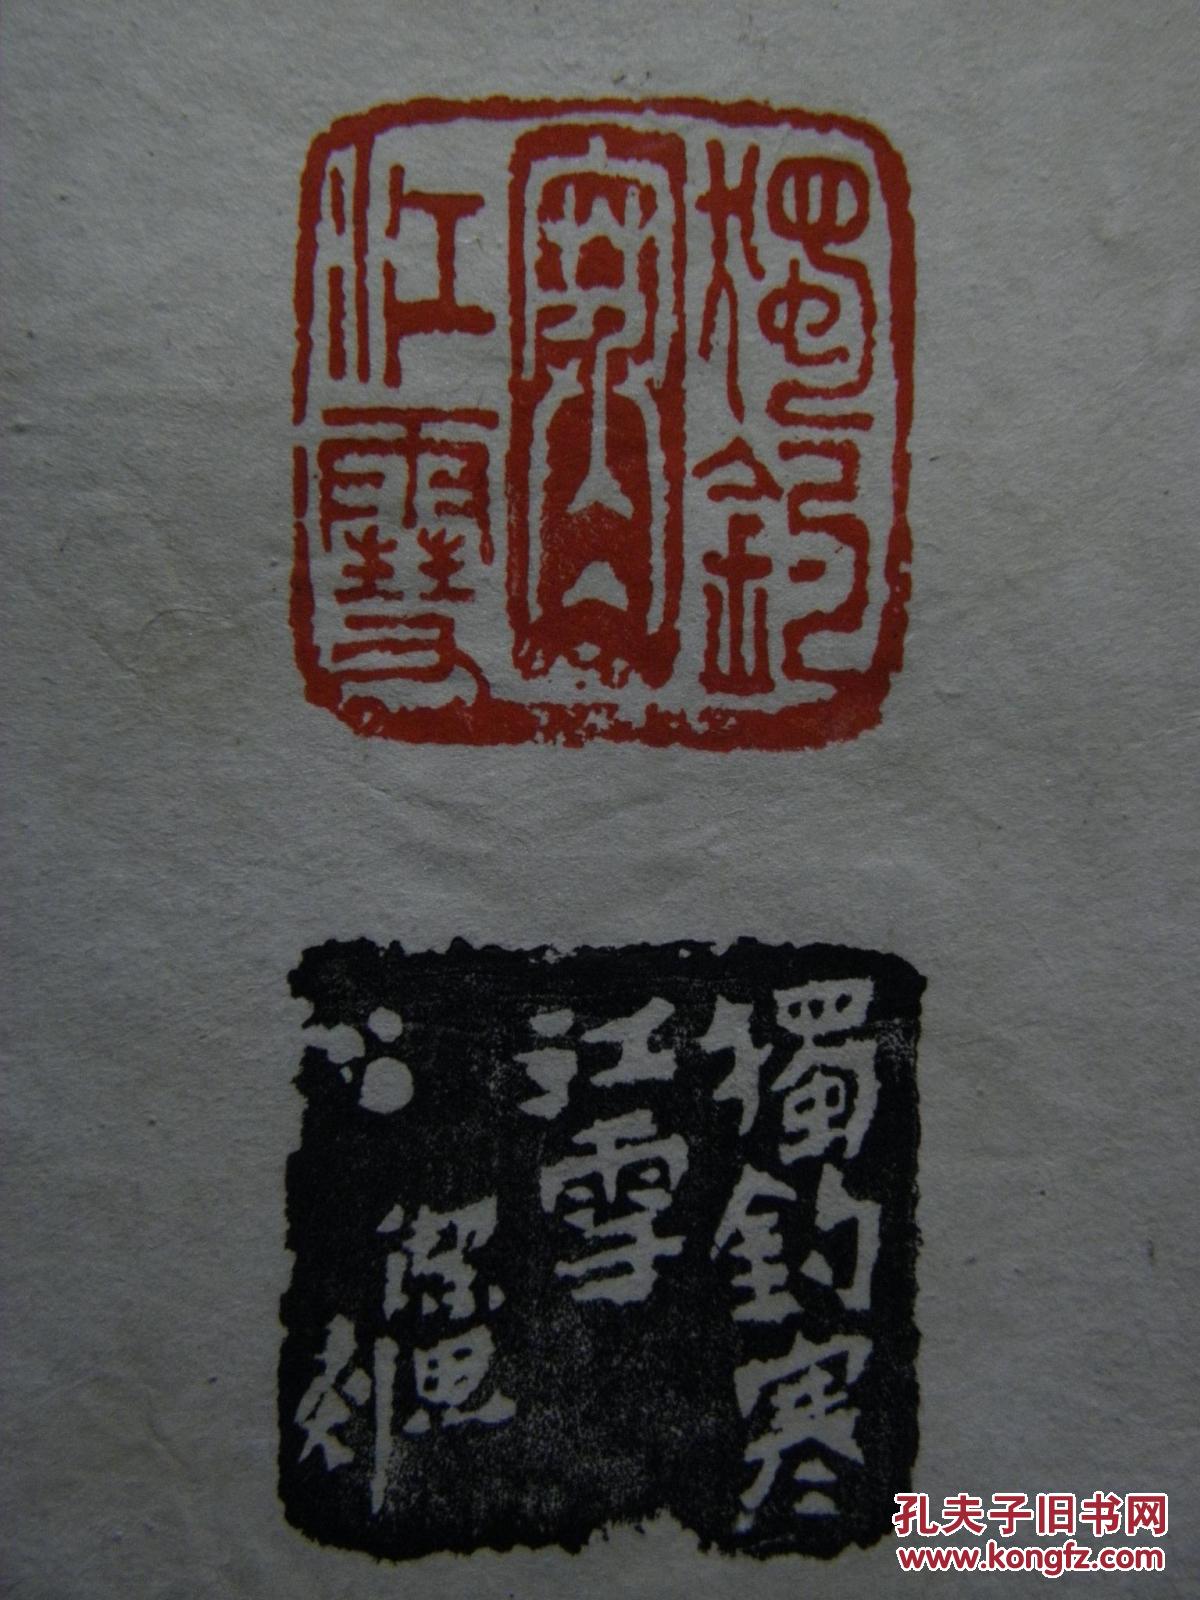 獨釣
寒
江雪
獨釣寒
江雪
刻
孔夫子旧书网
www.kongfz.com